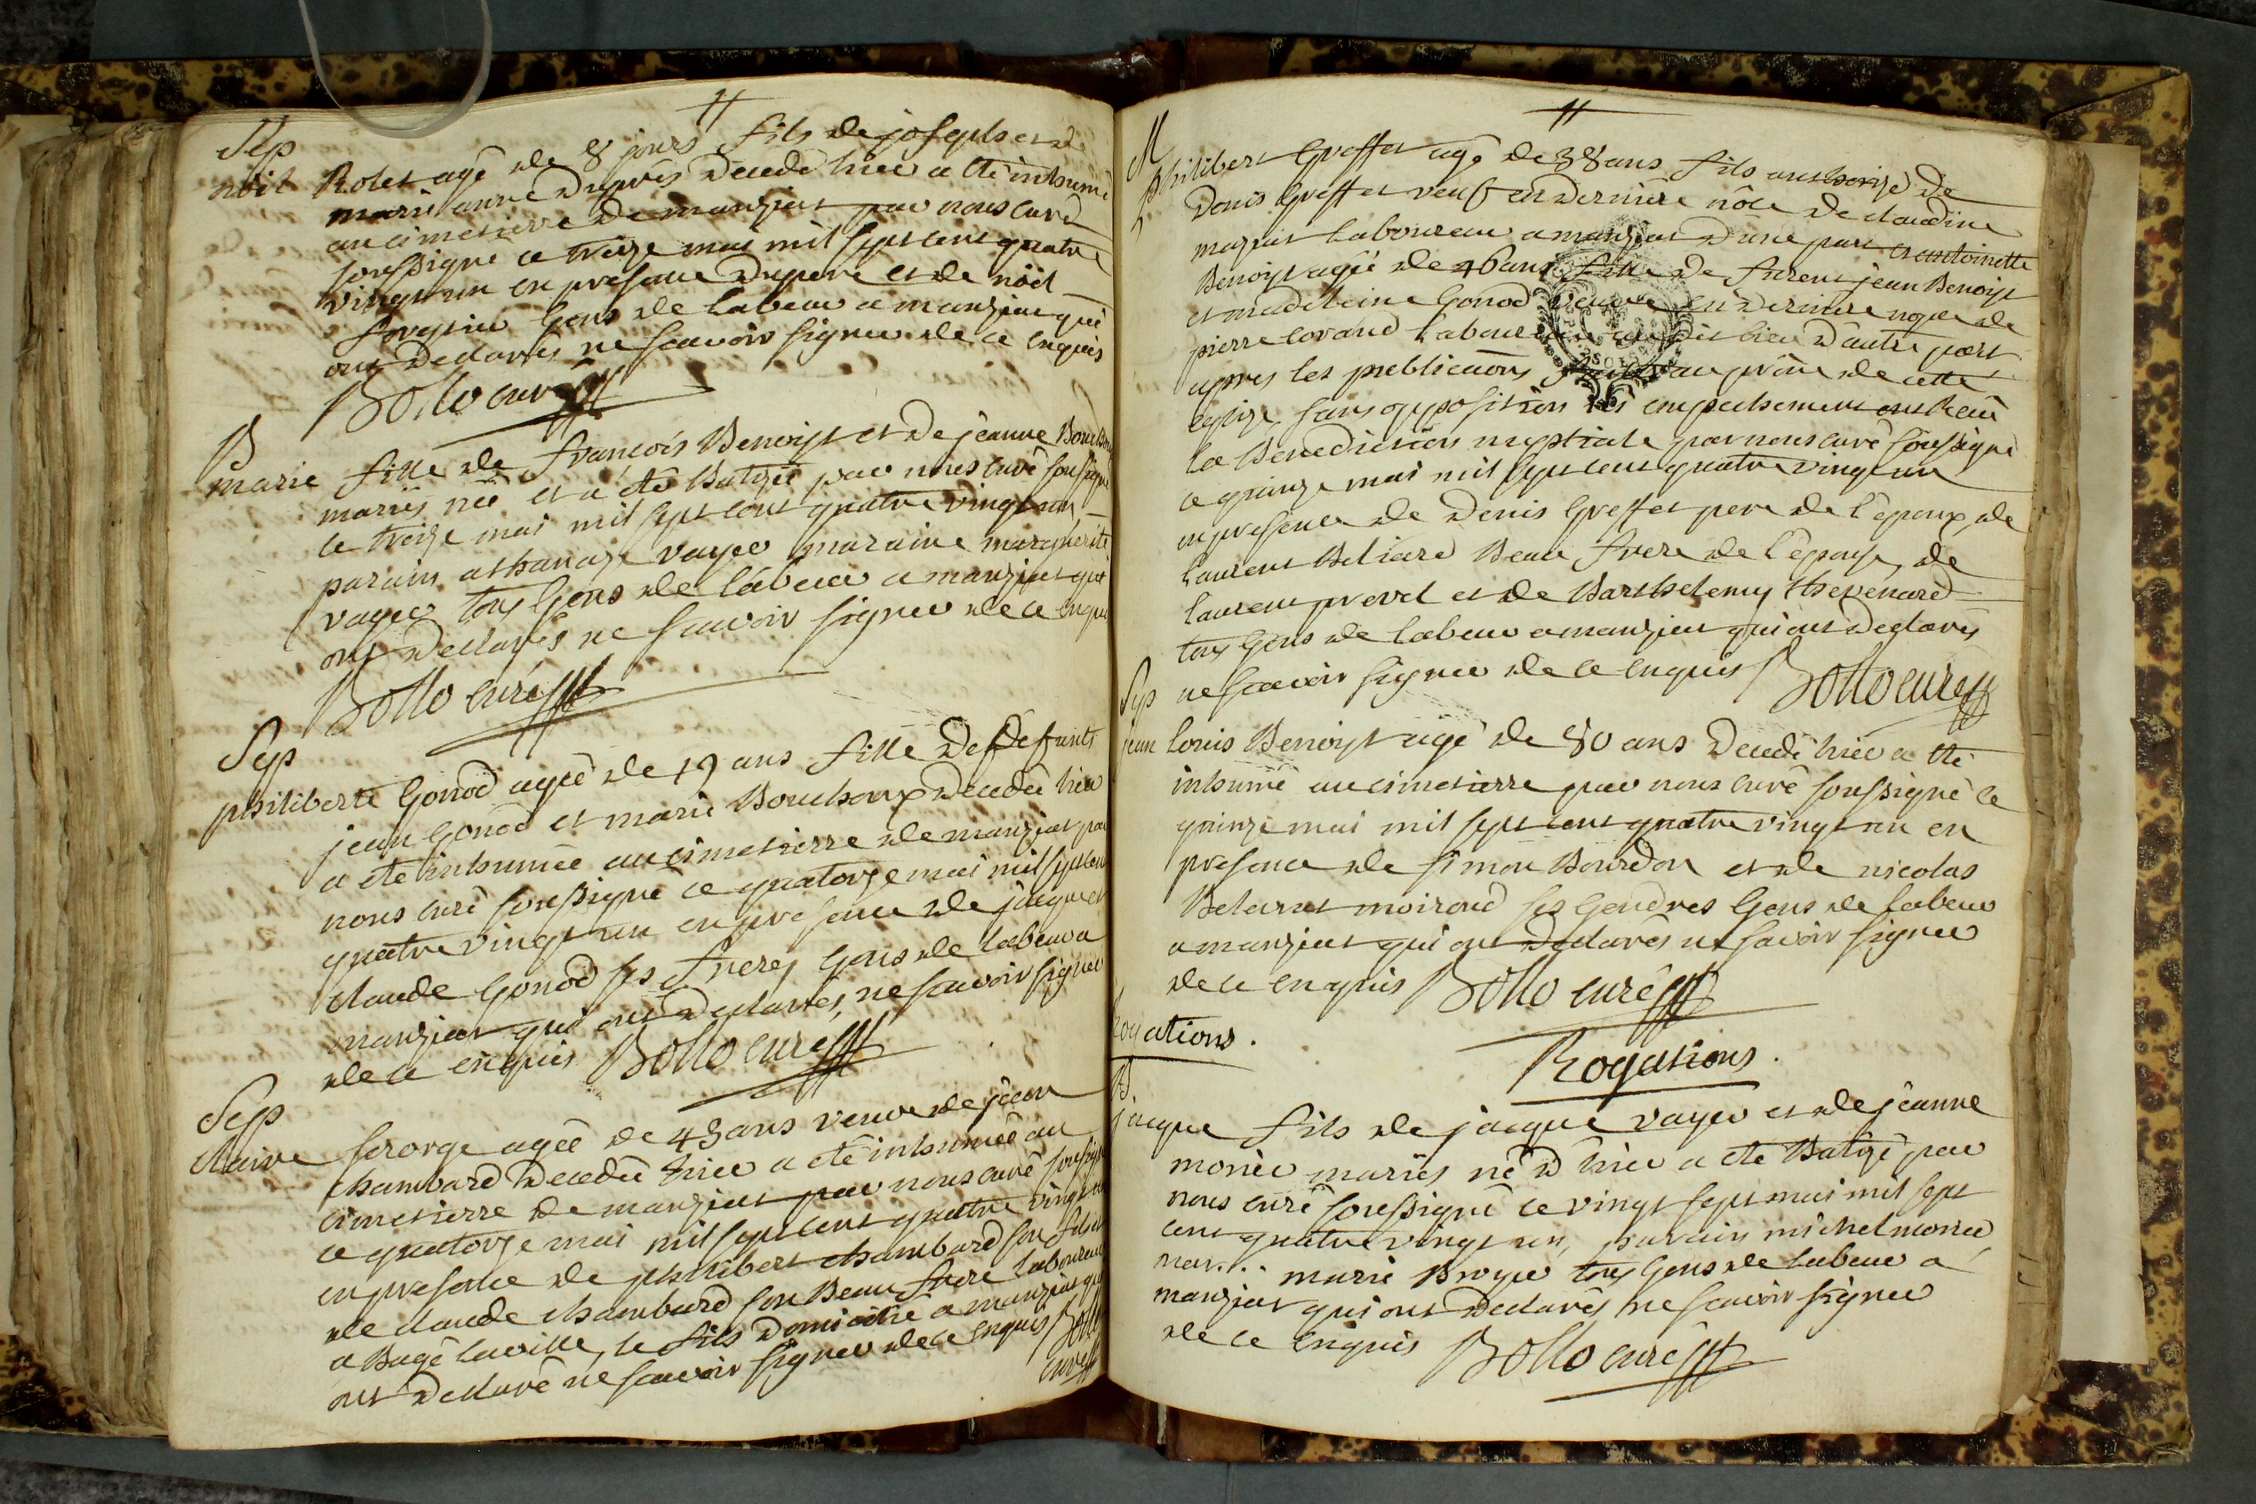 11
Sep
noël Rolet agé de 8 jours fils de joseph et de
marie anne Dupres decedé hier a été inhumé
au cimetierre de manziat par nous curé
soussigné ce treize mai mil sept cent quatre
vingt un en presence du pere et de noël
gens de labeur a manziat qui
ont declarés ne scavoir signer de ce enquis
Bollo curé
B
marie fille de francois Benoist et de jeanne
mariés née et a été Batizée par nous curé soussigné
ce treize mai mil sept cent quatre vingt un
parain athanaze vayer maraine marguerite
vayer tous gens de labeur a manziat qui
ont declarés ne scavoir signer de ce enquis
Bollo curé
Sep
philiberte Gonod agée de 19 ans fille de defunts
jean Gonod et marie Bouchoux decedée hier
a été inhumée au cimetierre de manziat par
nous curé soussigné ce quatorze mai mil sept cent
quatre vingt un en presence de jacque et
claude Gonod ses freres gens de labeur a
manziat qui ont declarés, ne scavoir signer
de ce enquis Bollo curé
Sep
claire ferorge agée de 43 ans veuve de jean
chambard decedée hier a été inhumée au
cimetierre de manziat par nous curé soussigné
ce quatorze mai mil sept cent quatre vingt un
en presence de philibert chambard son fils et
de claude chambard son Beau frere laboureur
a Bagé laville, le fils domicilié a manziat qui
ont declaré ne scavoir signer de ce enquis Bollo
curé
11
M
philibert Greffet agé de 38 ans fils authorizé de
Denis Greffet veuf en derniere nôce de claudine
maziat laboureur a manziat d'une part et antoinette
Benoist agée de 46 ans fille de furent jean Benoist
et madeleine Gonod veuve en derniere nopce de
pierre lorand laboureur dit lieu d'autre part
apres les publications faittes au prône de cette
eglize, sans opposition ni empechement ont Recû
la Benediction nuptiale par nous curé soussigné
ce quinze mai mil sept cent quatre vingt un
en presence de Denis Greffet pere de l'epoux, de
laurent Beliard Beau frere de l'epouse, de
laurent prevel et de Barthelemy thevenard
tous gens de labeur a manziat qui ont declarés
ne scavoir signer de ce enquis Bollo curé
Sep
jean louis Benoist agé de 80 ans decedé hier a été
inhumé au cimetierre par nous curé soussigné ce
quinze mai mil sept cent quatre vingt un en
presence de simon Bourdon et de nicolas
Belarut moiroud ses gendres gens de labeur
a manziat qui ont declarés ne savoir signer
de ce enquis Bollo curé
Rogations.
Rogations.
B
jacque fils de jacque vayer et de jeanne
monier mariés né d'hier a été Batizé par
nous curé soussigné ce vingt sept mai mil sept
cent quatre vingt un, parain michel monier
mar... marie Broyer tous gens de labeur a
manziat qui ont declarés ne scavoir signer
de ce enquis Bollo curé